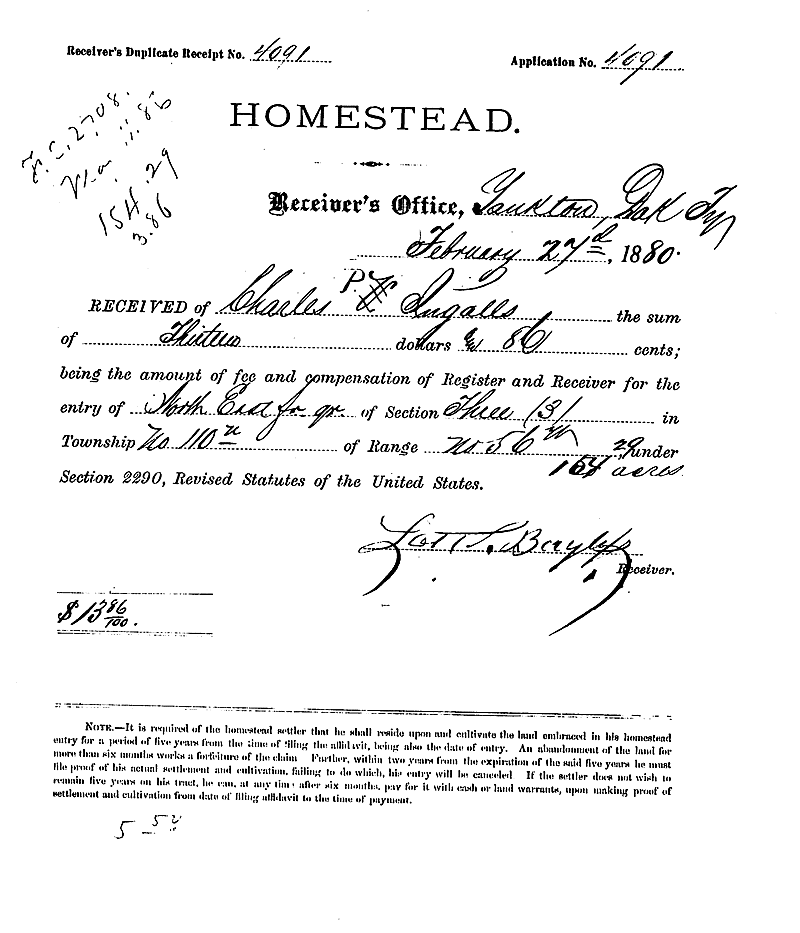 Receiver's Duplicate Receipt No. 4091
Application No. 4091
F.C. 2708.
11.86
154.29
3.86
HOMESTEAD.
Receiver's Office, Yankton, Dak Ty
February 27d, 1880.
RECEIVED of Charles P. Ingalls the sum
of Thirteen dollars & 86 cents;
being the amount of fee and compensation of Register and Receiver for the
entry of North East fr qr. of Section Three (3) in
Township No. 110 n of Range No. 56 W 29 under
154 acres
Section 2290, Revised Statutes of the United States.
Receiver.
$13 86/100.
NOTE.—It is required of the homestead settler that he shall reside upon and cultivate the land embraced in his homestead
entry for a period of five years from the time of filing the affidavit, being also the date of entry. An abandonment of the land for
more than six months works a forfeiture of the claim Further, within two years from the expiration of the said five years he must
file proof of his actual settlement and cultivation, failing to do which, his entry will be canceled If the settler does not wish to
remain five years on his tract, he can, at any time after six months, pay for it with cash or land warrants, upon making proof of
settlement and cultivation from date of filing affidavit to the time of payment.